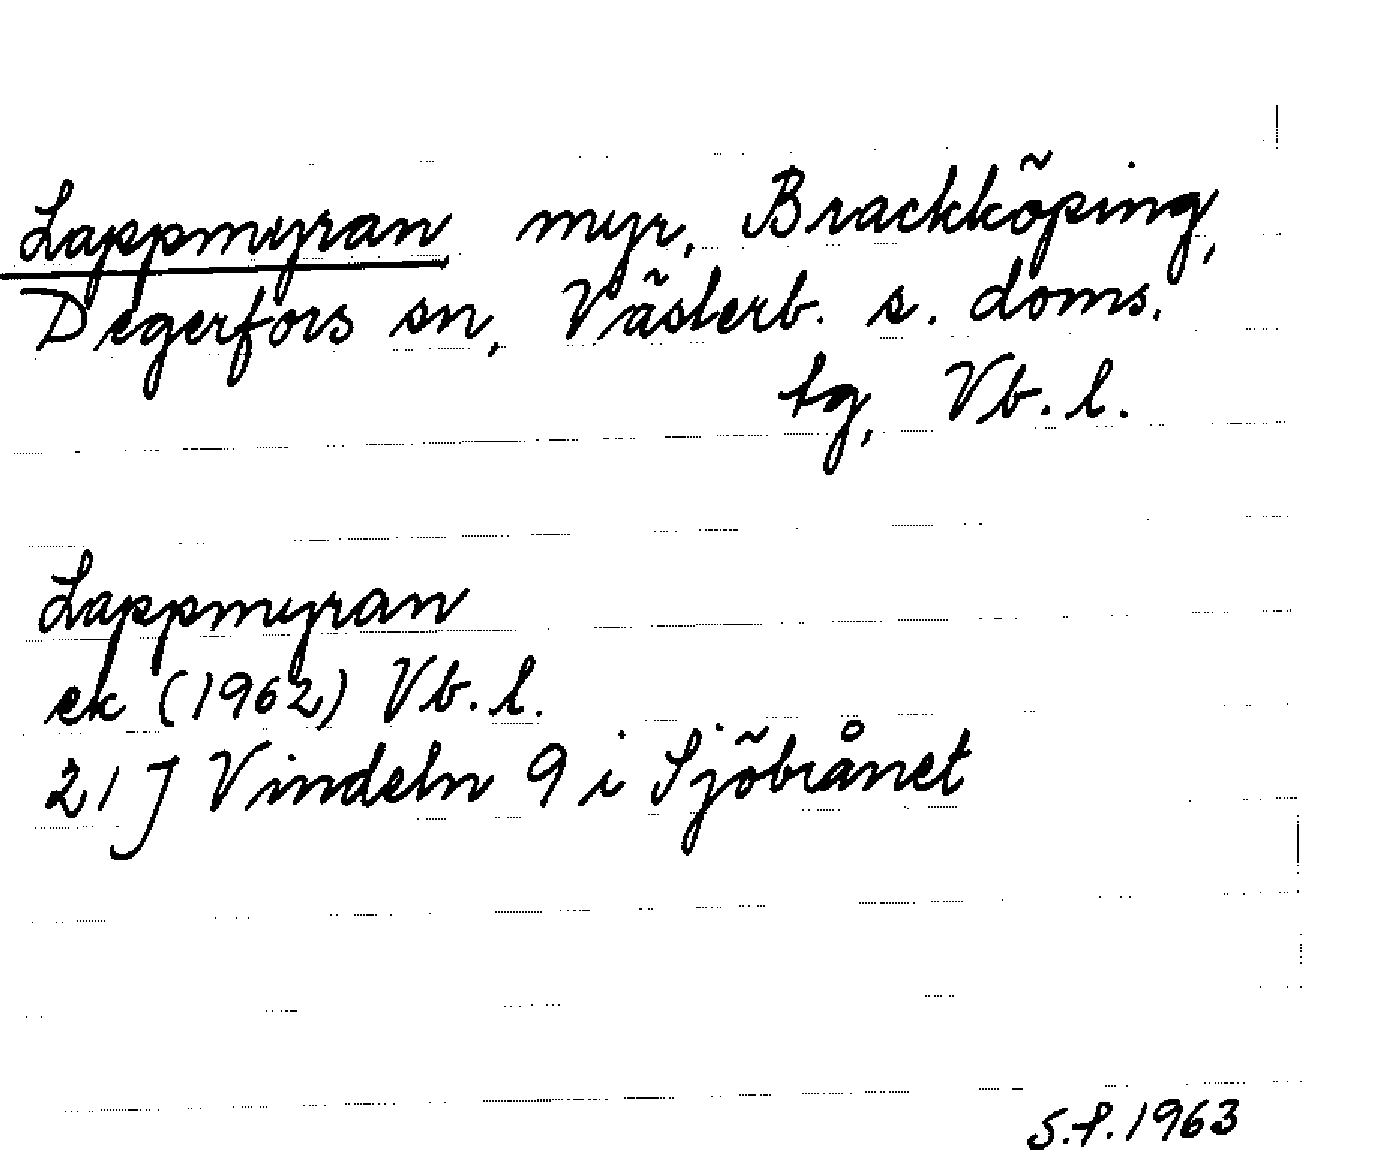 Lappmyran myr, Brackköping,
Degerfors sn, Västerb. s. doms.
tg, Vb. l.
Lappmyran
ek (1962) Vb. l.
21 J Vindeln 9 i Sjöbrånet
S.P. 1963